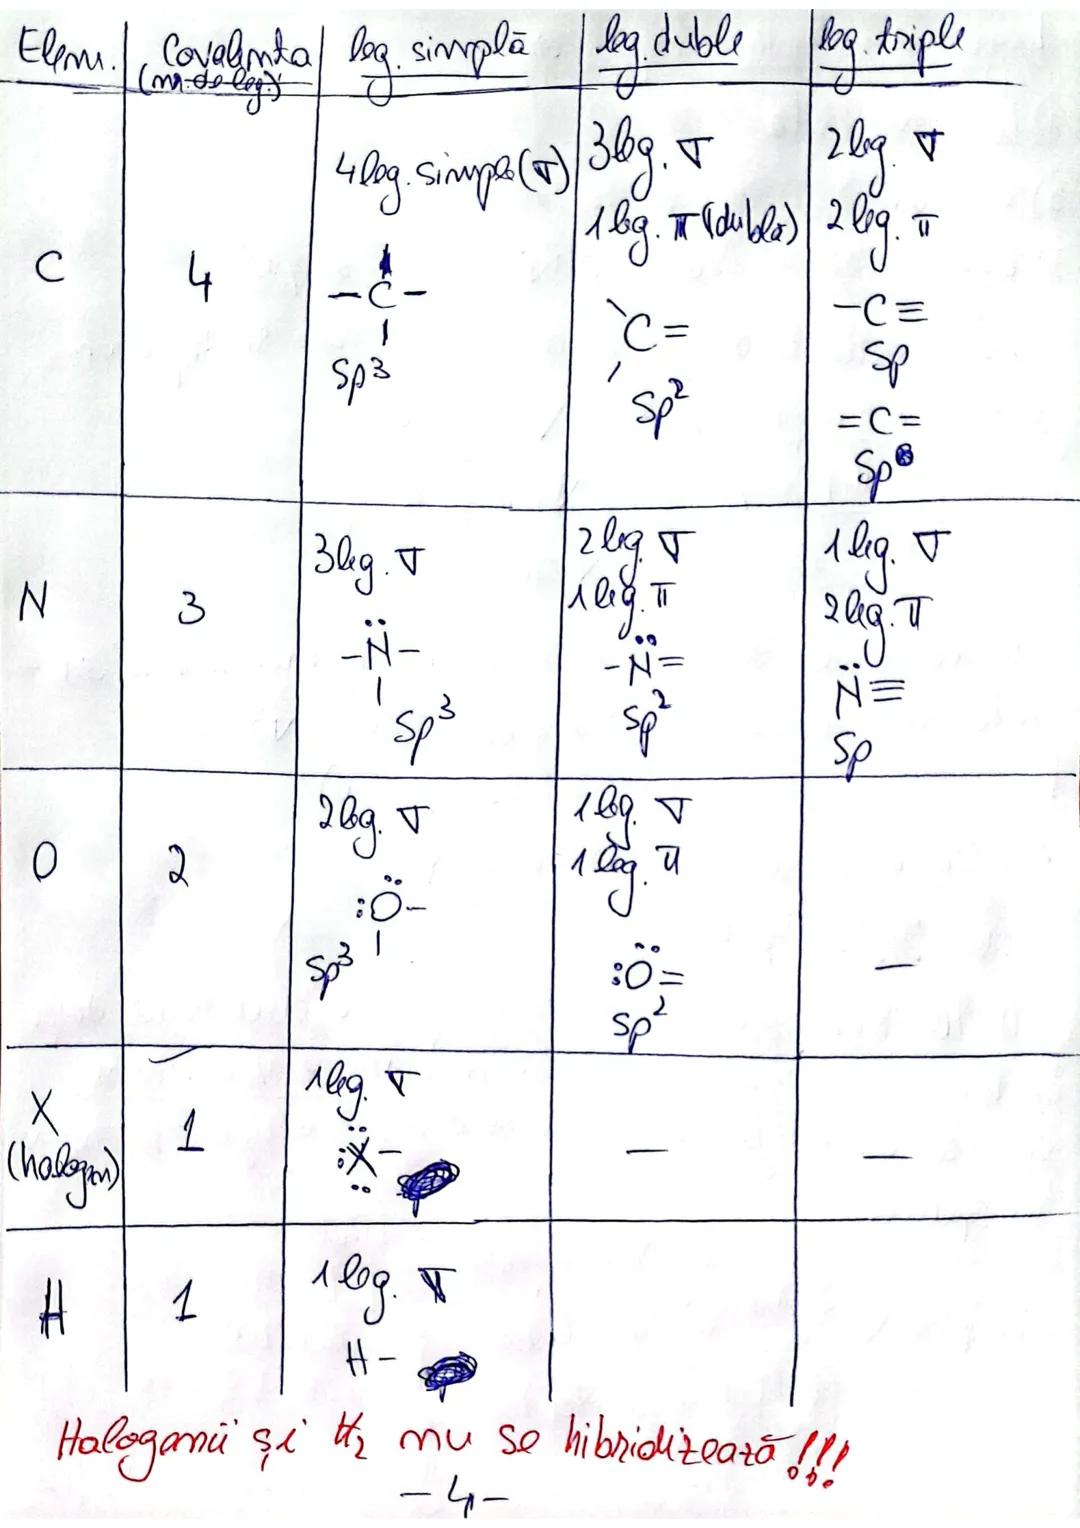 Elem. Covalența leg. simplă leg. duble leg. triple
(nr. de leg.)
C 4
4 leg. simple (σ)
-C-
Sp³
3 leg. σ
1 leg. π (dublă)
C=
Sp²
2 leg. σ
2 leg. π
-C≡
Sp
=C=
Sp
N 3
3 leg. σ
-N-
Sp³
2 leg. σ
1 leg. π
-N=
Sp²
1 leg. σ
2 leg. π
N≡
Sp
O 2
2 leg. σ
:O-
Sp³
1 leg. σ
1 leg. π
:O=
Sp²
—
X
(halogen)
1
1 leg. σ
:X-
—
—
H 1
1 leg. σ
H-
Halogenii și H₂ nu se hibridizează!!!
-4-